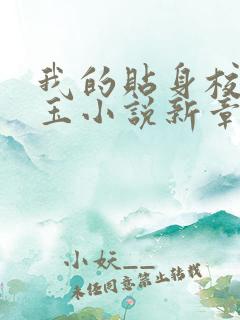 我的貼身校
玉小説新章
小妖__
未经同意禁止转载